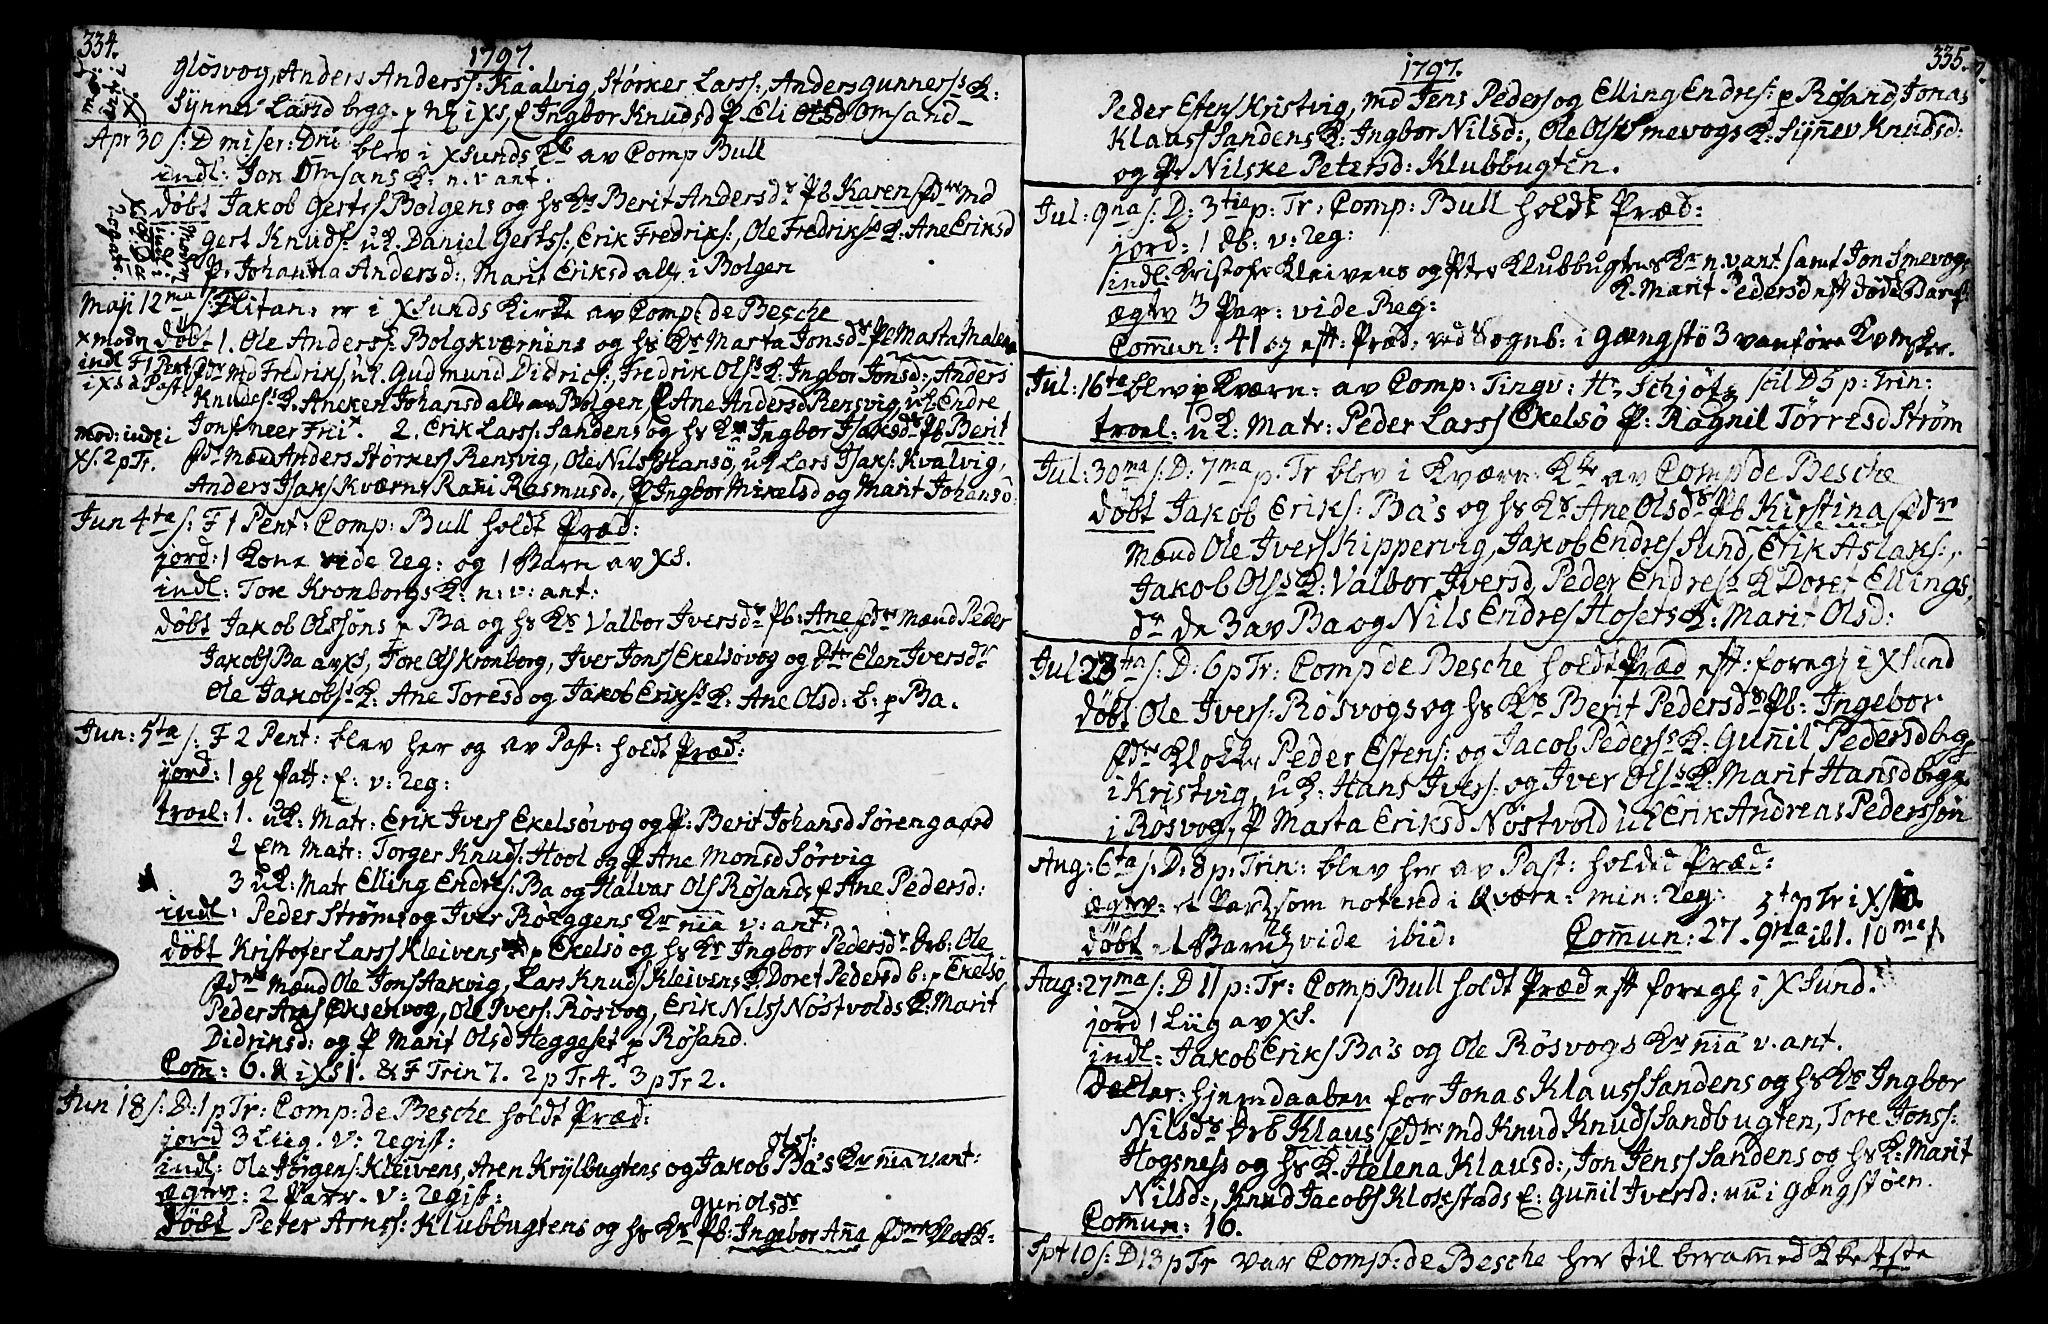 334.
1797.
Glösvog, Anders Anderss: Kaalvig, Störker Larss:, Anders Gunnerss K:
Synnev Larsd begg. p NZ i XS, P Ingbor Knudsd P Eli Olsd Omsand
Apr 30 s: D miser: Dni blev i XSunds K av Comp Bull
indl: Jon Omsans K: n. v ant.
döbt Jakob Gertss Bolgens og hs Ks Berit Andersds Pb Karen fdre md
Gert Knuds: uk. Daniel Gertss:, Erik Fredriks:, Ole Fredrikss K: Ane Eriksd
P. Johanna Andersd:, Marit Eriksd alle i Bolgen
Maji 12ma s: Flitan: er i XSunds Kirke av Comp: de Besche
döbt 1. Ole Anderss: Bolgkværnens og hs Ks Marta Jonsds Pb Marta Malena
x modn
indl F1 Pent
i XS a Past
fdre md Fredriks, uk. Gudmund Didrics:, Fredrik Olss K: Ingbor Jonsd:, Anders
Knudss K: Aneken Johansd alle av Bolgen P Ane Andersd Rensvig, uk Endre
Jons neer Frei. 2. Erik Larss: Sandens og hs Ks Ingbor Isaksds Pb Berit
mod: indl i
XS: 2 p Tr.
fdre mænd Anders Störkers Rensvig, Ole Nilss Hansö, uk Lars Isaks: Kvalvig,
Anders Isaks Kværns Rani Rasmusd., P Ingbor Mikelsd og Marit Johansd:
Jun 4ta s: F 1 Pent: Comp: Bull holdt Præd:
jord: 1 Kone vide Reg: og 1 Barn av XS.
indl: Tore Kronborgs K: n: v: ant:
döbt Jakob Olssöns p Ba og hs Ks Valbor Iversds Pb: Ane fdre Mænd Peder
Jakobs Ba av XS, Tore Ols Kronborg, Iver Jonss Ekelsövog og Elen Iversdr
Ole Jakobss K: Ane Toresd og Jakob Erikss K: Ane Olsd: b: p Ba.
Jun: 5ta s: F 2 Pent: blev her og av Past: holdt Præd:
jord: 1 gl fatt: E: v: Reg:
troel: 1. uk: Matr: Erik Ivers Ekelsövog og P: Berit Johansd Sörengaard
2 Em Matr: Torger Knuds: Hool og P Ane Monsd Sörvig
3 uk: Matr Elling Endres: Ba og Halvar Ols Rösands E Ane Pedersd:
indl: Peder Ströms og Iver Röeggens Kr nia v: ant:
döbt Kristofer Larss Kleivens p Ekelsö og hs Ks Ingbor Pedersds Drb: Ole
fdre Mænd Ole Jons Aakvig, Lars Knuds Kleivens K Doret Pedersd b: p Ekelsö
Peder Arns Eksenvog, Ole Ivers: Rösvog, Erik Nilss Nöstvolds K: Marit
Didrinsd: og P Marit Olsd Heggeset p Rösand.
Com: 6. & i XS 1. & F Trin 7. 2 p Tr 4. 3 p Tr 2.
Jun 18 s: D: 1 p Tr: Comp: de Besche holdt Præd:
jord 3 Liig. V: Regist:
indl: Ole Jörgens: Kleivens, Aren Krylbugtens og Jakob Olss: Ba's Kr nia v ant:
ægtev: 2 Parr. v: Regist:
döbt Peter Arnss: Klubbugtens og hs Ks Guri Olsds Pb: Ingebor Ana fdre Klokk-
335.
1797.
Peder Estens Kristvig, md Jens Peders og Elling Endres: p Rösand, Jonas
Klauss Sandens K: Ingbor Nilsd:, Ole Olss Smevogs K: Synnev Knudsd:
og P Nilske Petersd: Klubbugten.
Jul: 9na s: D: 3tia p: Tr: Comp: Bull holdt Præd:
jord: 1 db: v: Reg:
indl: Kristofer Kleivens og Peter Klubbugtens Kr n. vant: samt Jon Smevogs
K. Marit Pedersd eft dödt Barsel
ægtv 3 Par: vide Reg:
Comun: 41 og eft: Præd: ved Sognb: i Gængstö 3 vanföre Komster.
Jul: 16ta blev i Kværn: av Comp: Tingv: Hr Schjötz scil D 5 p: Trin:
troel: uk: Matr: Peder Larss Ekelsö P: Ragnil Törresd Ström
Jul: 30ma s: D: 7ma p: Tr blev i Kværn: Kke av Comp de Besche
döbt Jakob Eriks: Ba's og hs Ks Ane Olsds Pb Kirstina fdre
Mænd Ole Ivers Kippervig, Jakob Endres Sund, Erik Aslaks:,
Jakob Olss K: Valbor Iversd, Peder Endress K Doret Ellings
dr de 3 av Ba og Nils Endres Hosets K: Marit Olsd:
Jul 23ta s: D: 6 p Tr: Comp de Besche holdt Præd eft: foregl i XSund
döbt Ole Ivers: Rösvogs og hs Ks Berit Pedersds Pb: Ingebor
fdre Klokkr Peder Estens: og Jacob Pederss K: Gunnil Pedersd begge
i Kristvig, uk: Hans Ivers: og Iver Olss K: Marit Hansd begge
i Rösvog, P Marta Eriksd Nöstvold uk Erik Andreas Pederssön
Aug: 6ta s: D: 8 p: Trin: blev her av Past: holdet Præd:
ægtev: et Par, som noterd i Kværn: min: Reg: 5ta p Tr i XS 10
döbt 1 Barn vide ibid: Comun: 27. 9na: ib 1. 10ma 1.
Aug: 27ma s: D 11 p: Tr: Comp Bull holdt Præd eft foregl i XSund.
jord 1 Liig av XS.
indl: Jakob Eriks Ba's og Ole Rösvogs Kr nia v. ant.
Decler: hjemdaaben for Jonas Klauss Sandens og hs Ks Ingbor
Nilsds Drb Klaus fdre md Knud Knuds Sandbugten, Tore Jonss:
Hogsness og hs K. Helena Klausd:, Jon Jenss Sandens og hs K: Marit
Nilsd:, Knud Jacobs Klokstads E: Gunnil Iversd: nu i Gængstöen.
Comun: 16.
Spt 10 s: D 13 p Tr var Comp: de Besche her til beramed Kketste